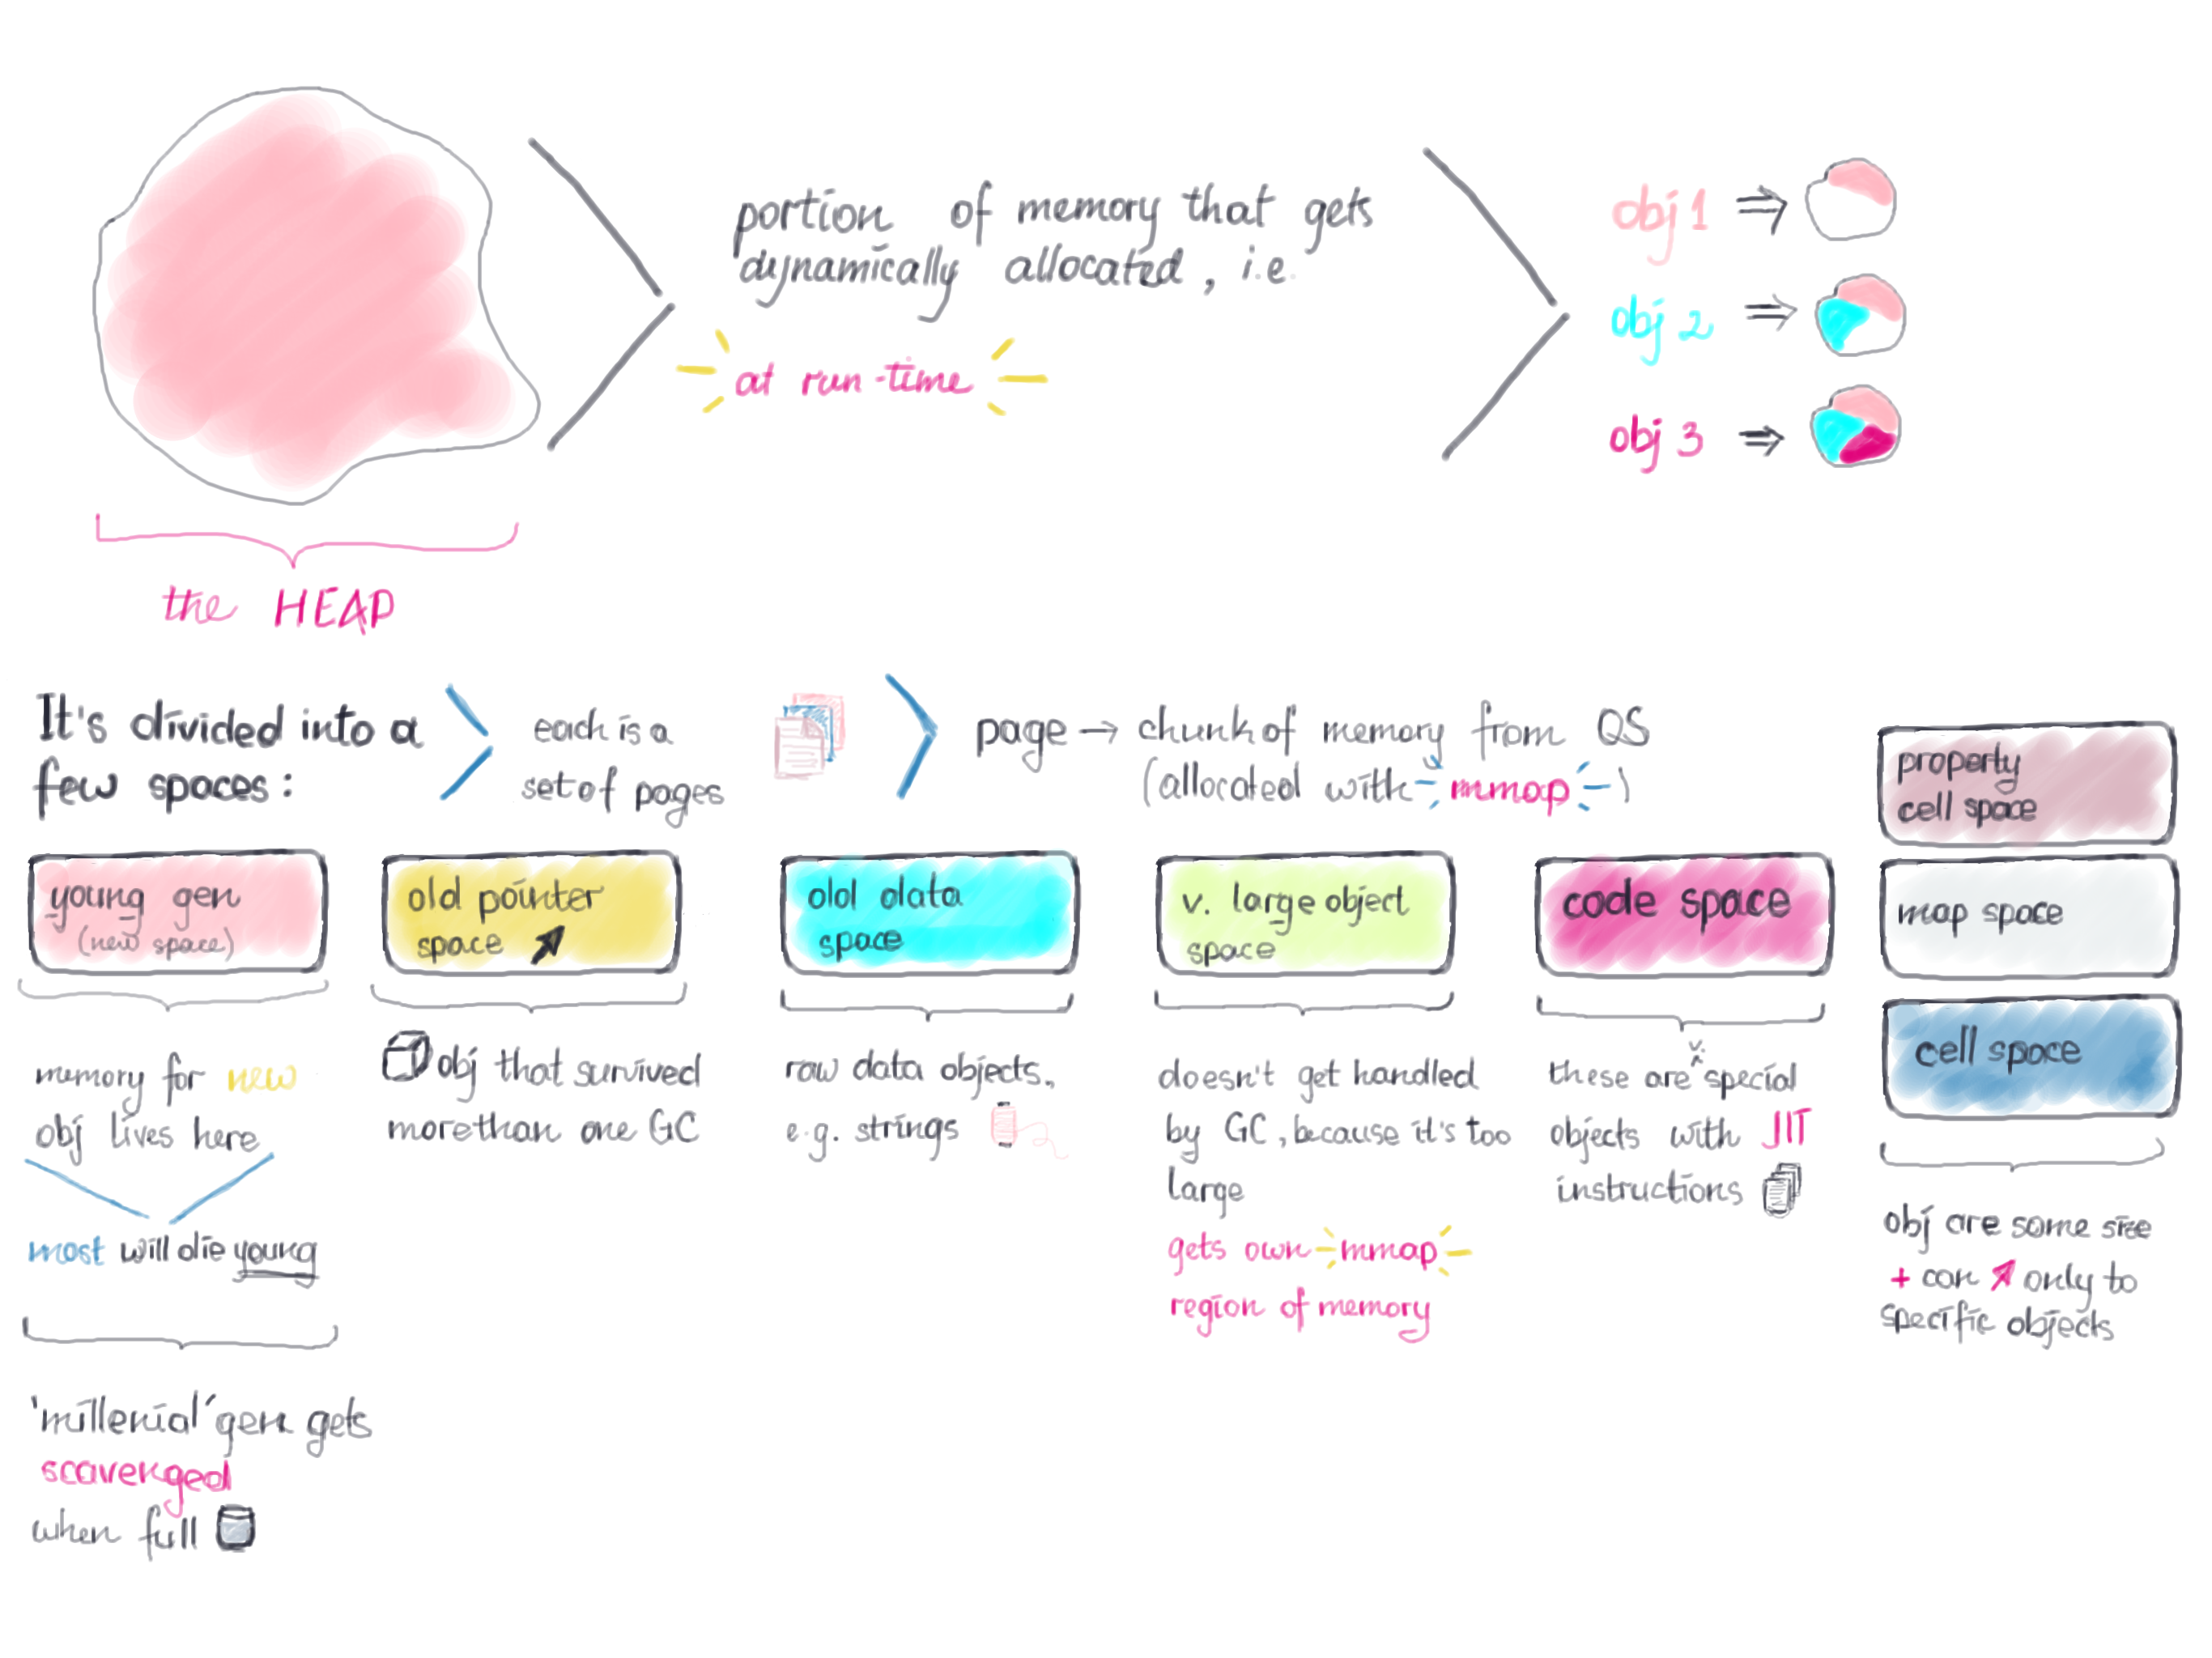 portion of memory that gets
dynamically allocated, i.e.
at run-time
obj 1 ⇒
obj 2 ⇒
obj 3 ⇒
the HEAP
It's divided into a
few spaces:
each is a
set of pages
page → chunk of memory from OS
(allocated with mmap)
young gen
(new space)
memory for new
obj lives here
most will die young
'millenial' gen gets
scavenged
when full
old pointer
space
obj that survived
more than one GC
old data
space
raw data objects,
e.g. strings
v. large object
space
doesn't get handled
by GC, because it's too
large
gets own mmap
region of memory
code space
these are v. special
objects with JIT
instructions
property
cell space
map space
cell space
obj are some size
+ can ↗ only to
specific objects